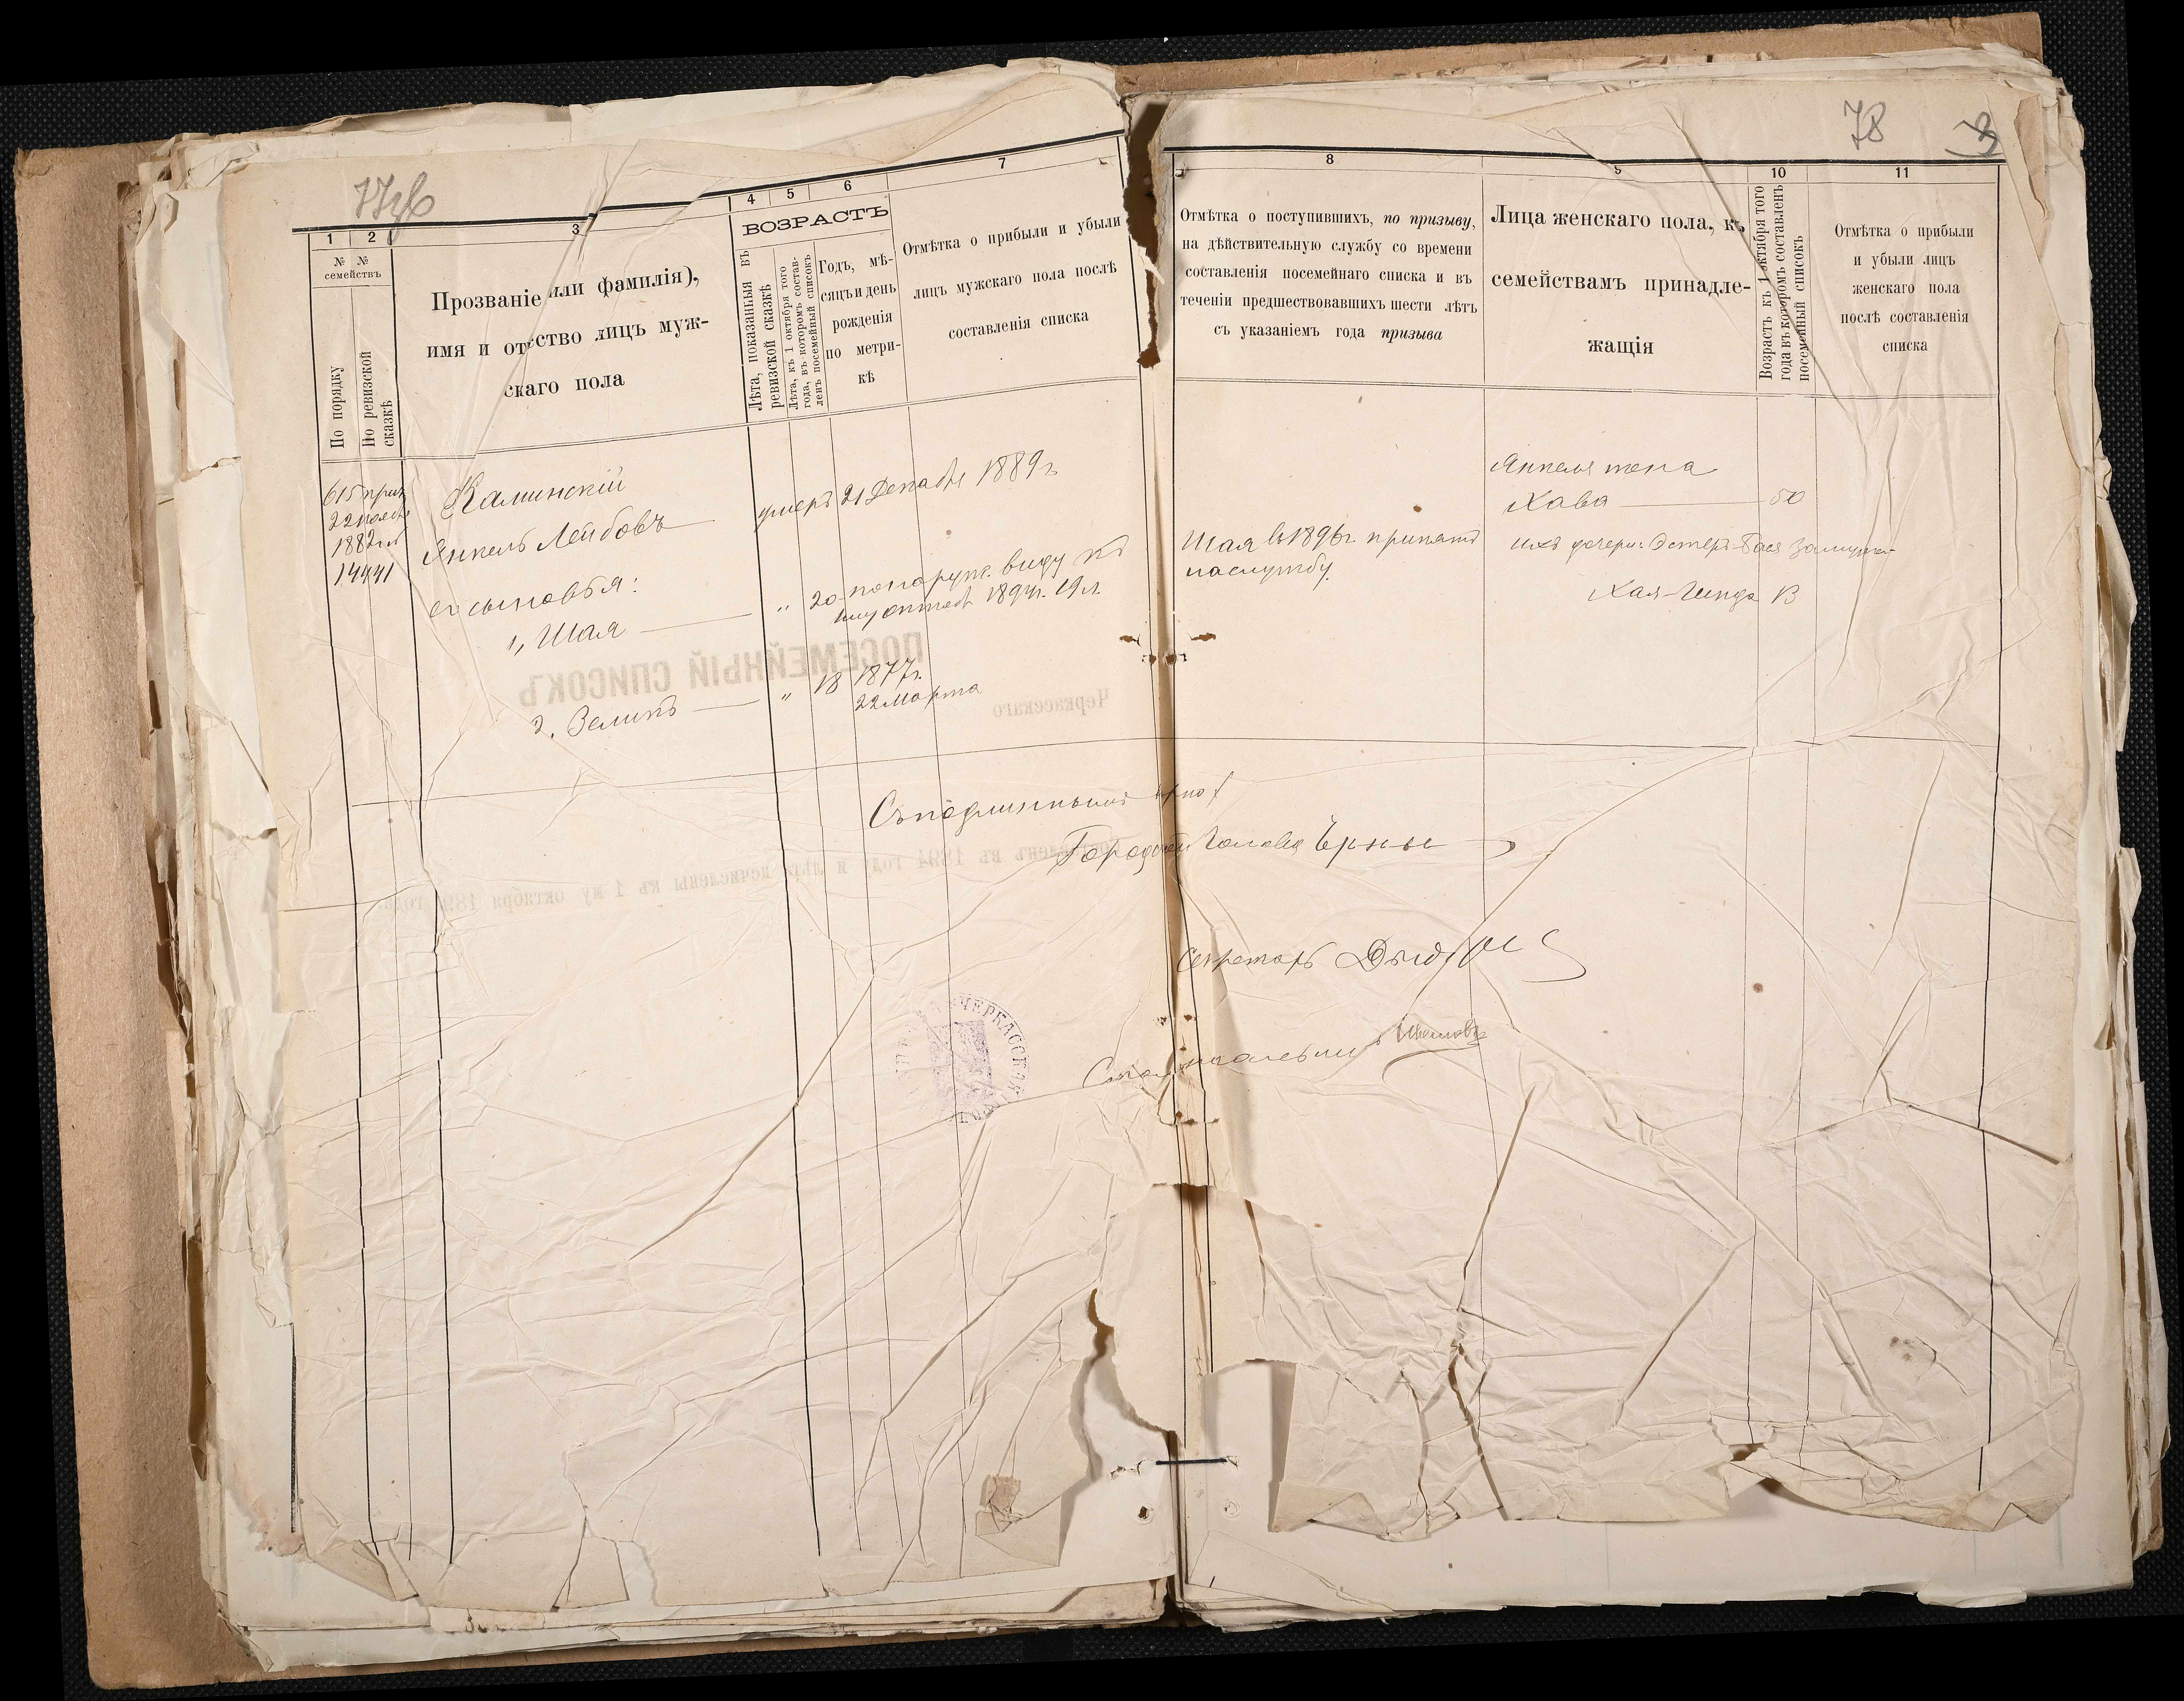 77об
78
1
2
3
4
5
6
7
8
9
10
11
№ №
семействъ
По порядку
По ревизской
сказкѣ
Прозваніе или фамилія),
имя и отчество лицъ муж-
скаго пола
ВОЗРАСТЪ
Лѣта, показанныя въ
ревизской сказкѣ
Лѣта, къ 1 октября того
года, въ которомъ состав-
ленъ посемейный списокъ
Годъ, мѣ-
сяцъ и день
рожденія
по метри-
кѣ
Отмѣтка о прибыли и убыли
лицъ мужскаго пола послѣ
составленія списка
Отмѣтка о поступившихъ, по призыву,
на дѣйствительную службу со времени
составленія посемейнаго списка и въ
теченіи предшествовавшихъ шести лѣтъ
съ указаніемъ года призыва
Лица женскаго пола, къ
семействамъ принадле-
жащія
Возрастъ къ 1 октября того
года въ которомъ составленъ
посемейный списокъ
Отмѣтка о прибыли
и убыли лицъ
женскаго пола
послѣ составленія
списка
615
22
1882
14441
Каминскій
Янкель Лейбовъ
умеръ 21 Декабря 1889 г.
его сыновья:
1, Шая " 20 по наруж. виду къ
1894г. 19 л.
2. Зеликъ " 18 1877г.
22 Марта
Шая въ 1896г. принятъ
на службу.
Янкеля жена
Хава 50
ихъ дочери: Эстеръ-Бася замужем
Хая-Гинда 13
ПОСЕМЕЙНЫЙ СПИСОКЪ
Черкасскаго
въ 1894 году и лѣта исчислены къ 1 му октября 189 года
Съ подлиннымъ вѣрно:
Городской Голова
Секретарь
Столоначальникъ
ЧЕРКАССКАЯ